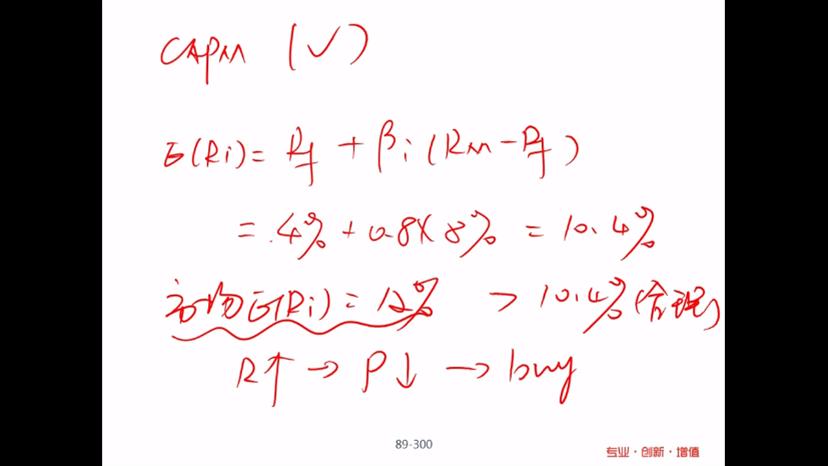 CAPM (✓)
E(Ri) = Rf + βi (RM - Rf)
= 4% + 0.8 × 8% = 10.4%
市场E(Ri) = 12% > 10.4% (合理)
R↑ → P↓ → buy
89-300
专业·创新·增值